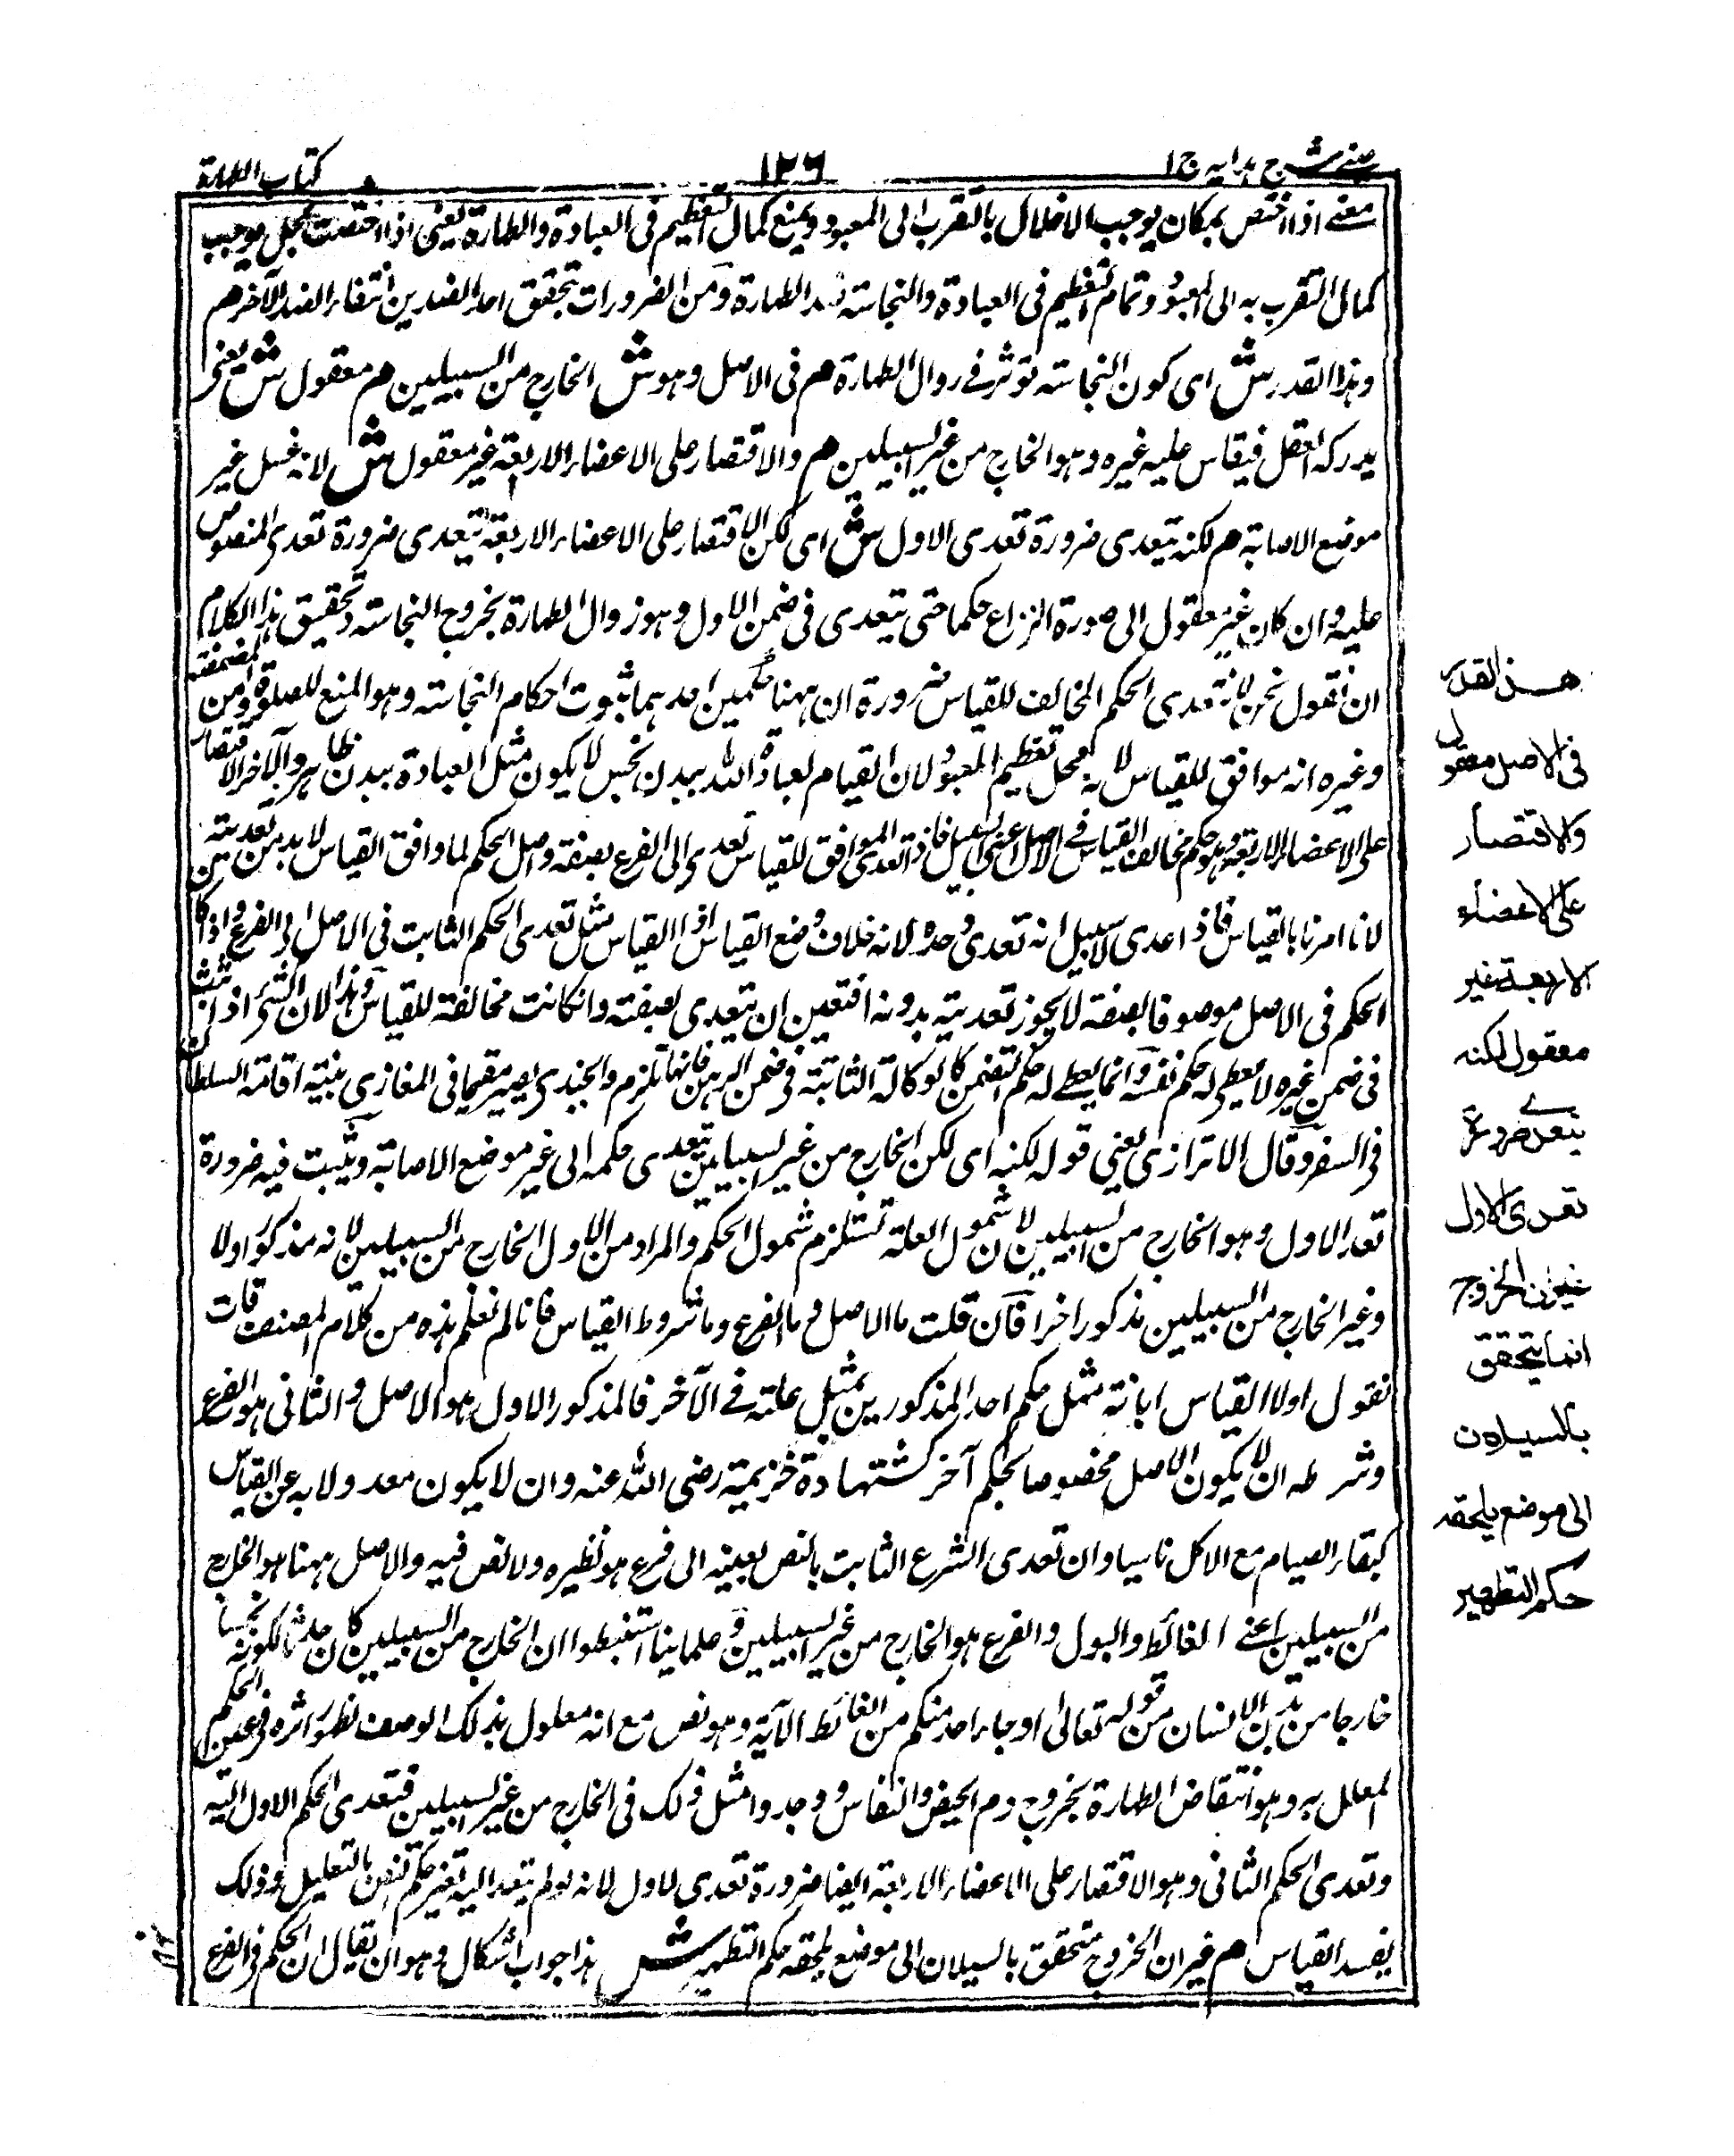 عينے شرح ہدایہ ج ١
١٢٦
کتاب الطهارة
معنے اذا اختص بمکان یوجب الاخلال بالتقرب الی المعبود ویمنع کمال التعظیم فی العبادة والطهارة یعنی اذا اختصت بمحل یوجب
کمال التقرب به الی المعبود وتمام التعظیم فی العبادة والنجاسة ضد الطهارة ومن الضرورات تحقق احد الضدین انتفاء الضد الآخر هم
وهذا القدر ش ای کون النجاسة تؤثر فے زوال الطهارة هم فی الاصل وهو ش الخارج من السبیلین هم معقول ش یعنی
یدرکه العقل فیقاس علیه غیره وهو الخارج من غیر السبیلین هم والاقتصار علی الاعضاء الاربعة غیر معقول ش لانه غسل غیر
موضع الاصابة هم لکنه یتعدی ضرورة تعدی الاول ش ای لکن الاقتصار علی الاعضاء الاربعة یتعدی ضرورة تعدی المنصوص
علیه وان کان غیر معقول الی صورة النزاع حکما حتی یتعدی فی ضمن الاول وهو زوال الطهارة بخروج النجاسة وتحقیق هذا الکلام
ان نقول نحن لا نتعدی الحکم المخالف للقیاس ضرورة ان ههنا حکمین احدهما ثبوت احکام النجاسة وهو المنع للصلوة ومن المضمضة
وغیره انه موافق للقیاس لانه محل تعظیم المعبود لان القیام لعبادة الله ببدن نجس لا یکون مثل العبادة ببدن طاهر والآخر الاقتصار
علی الاعضاء الاربعة وهو حکم مخالف القیاس فے الاصل اعنی السبیل فاذا تعدی الموافق للقیاس تعدی الی الفرع بصفته واصل الحکم لما وافق القیاس لا بد من تعدیته
لانا امرنا بالقیاس فاذا عدی لا سبیل انه تعدی وحده لانه خلاف وضع القیاس اذ القیاس مثل تعدی الحکم الثابت فی الاصل الی الفرع واذا کان
الحکم فی الاصل موصوفا بصفة لا یجوز تعدیته بدونها فتعین ان یتعدی بصفته وان کانت مخالفة للقیاس وهذا لان الشیء اذا ثبت
فی ضمن غیره لا یعطی له حکم نفسه وانما یعطے له حکم المتضمن کالوکالة الثابتة فی ضمن الرهن فانها تلزم والجندی یصیر مقیما فی المغازی بنیة اقامة السلطان
فی السفر وقال الاترازی یعنی قوله لکنه ای لکن الخارج من غیر السبیلین یتعدی حکمه الی غیر موضع الاصابة ویثبت فیه ضرورة
تعد الاول وهو الخارج من السبیلین لان شمول العلة تستلزم شمول الحکم والمراد من الاول الخارج من السبیلین لانه مذکور اولا
وغیر الخارج من السبیلین مذکور اخرا فان قلت ما الاصل وما الفرع وما شروط القیاس فانا لم نعلم هذه من کلام المصنف قلت
نقول اولا القیاس ابانة مثل حکم احد المذکورین بمثل علته فے الآخر فالمذکور الاول هو الاصل والثانی هو الفرع
وشرطه ان لا یکون الاصل مخصوصا بحکم آخر کشهادة خزیمة رضی الله عنه وان لا یکون معدولا به عن القیاس
کبقاء الصیام مع الاکل ناسیا وان تعدی الشرع الثابت بالنص بعینه الی فرع هو نظیره ولا نص فیه والاصل ههنا هو الخارج
من السبیلین اعنے الغائط والبول والفرع هو الخارج من غیر السبیلین وعلماینا استنبطوا ان الخارج من السبیلین کان حدثا لکونه نجسا
خارجا من بدن الانسان من قوله تعالی او جاء احد منکم من الغائط الآیة وهو نص مع انه معلول بذلک الوصف لظهور اثره فی عین الحکم
المعلل به وهو انتقاض الطهارة بخروج دم الحیض والنفاس ووجدوا مثل ذلک فی الخارج من غیر السبیلین فتعدی الحکم الاول الیه
وتعدی الحکم الثانی وهو الاقتصار علی الاعضاء الاربعة ایضا ضرورة تعدی الاول لانه لو لم یتعد الیه تغیر حکم النص بالتعلیل وذلک
یفسد القیاس هم غیر ان الخروج یتحقق بالسیلان الی موضع یلحقه حکم التطهیر ش هذا جواب اشکال وهو ان یقال ان الحکم فی الفرع
هذا القدر
فی الاصل معقول
والاقتصار
علی الاعضاء
الاربعة غیر
معقول لکنه
یتعدی ضرورة
تعدی الاول
غیر ان الخروج
انما یتحقق
بالسیلان
الی موضع یلحقه
حکم التطهیر